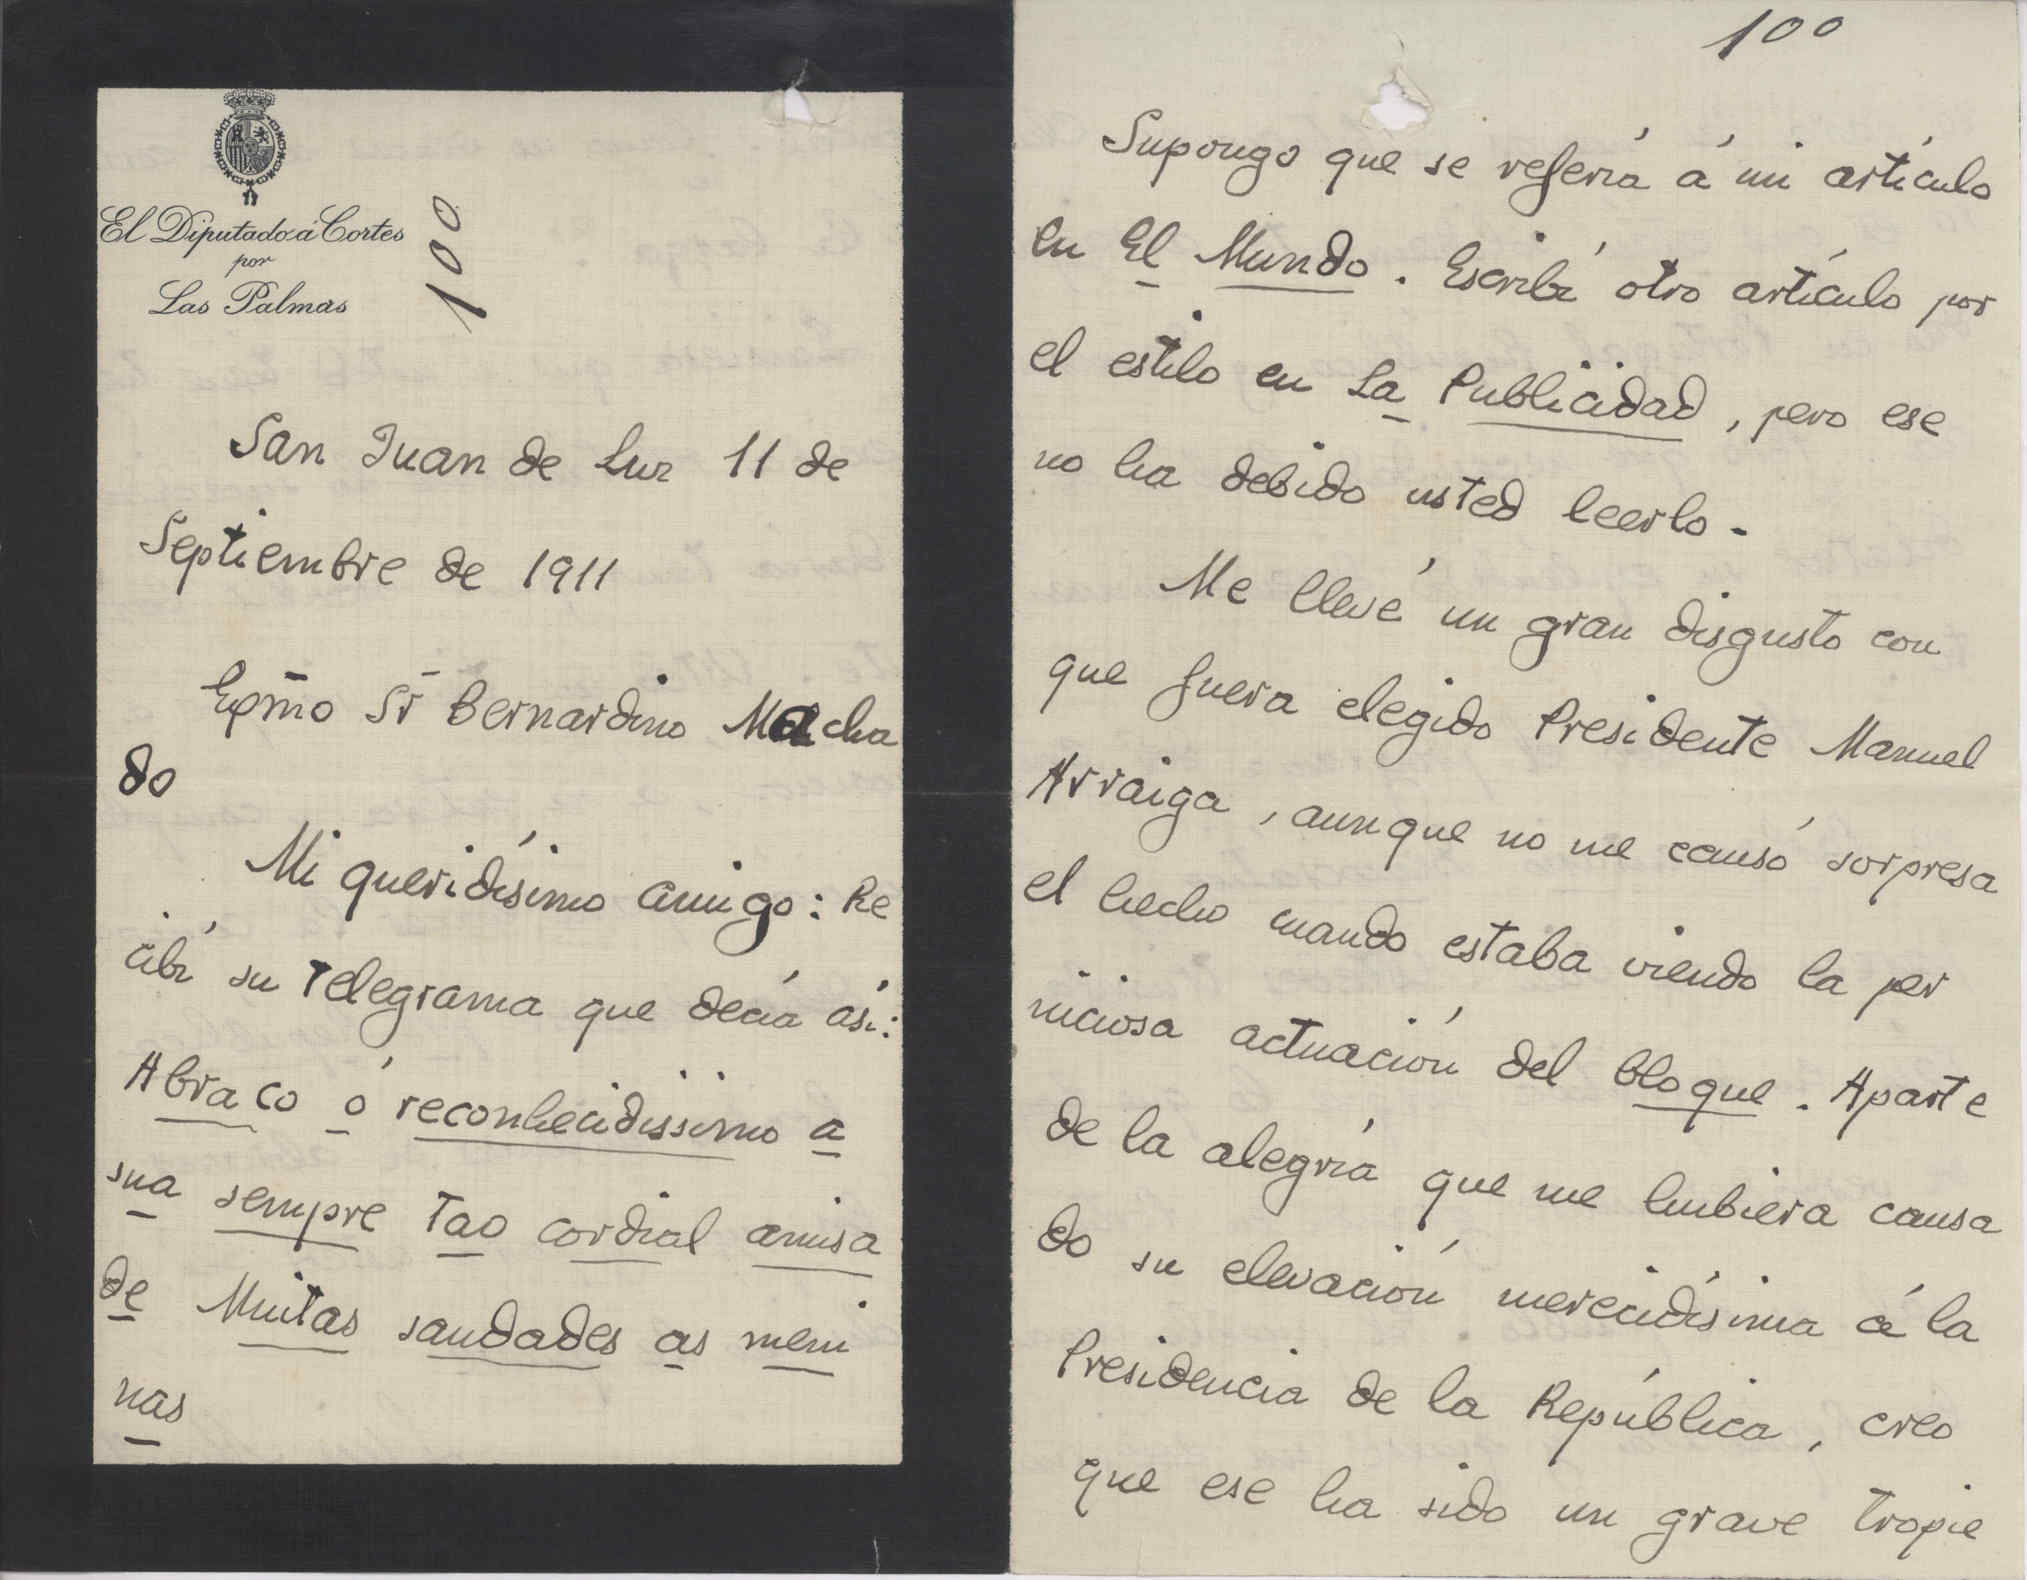 El Diputado á Cortes
por
Las Palmas
100
San Juan de Luz 11 de
Septiembre de 1911
Exmo Sr Bernardino Macha
do
Mi queridísimo amigo: Re
cibí su telegrama que decía así:
Abraco ó reconhecidissimo a
sua sempre tao cordial amisa
de Muitas saudades as meni
nas
100
Supongo que se refería á mi artículo
en El Mundo. Escribí otro artículo por
el estilo en La Publicidad, pero ese
no ha debido usted leerlo.
Me llevé un gran disgusto con
que fuera elegido Presidente Manuel
Arraiga, aunque no me causó sorpresa
el hecho cuando estaba viendo la per
niciosa actuación del bloque. Aparte
de la alegría que me hubiera causa
do su elevación merecidísima á la
Presidencia de la República, creo
que ese ha sido un grave tropie